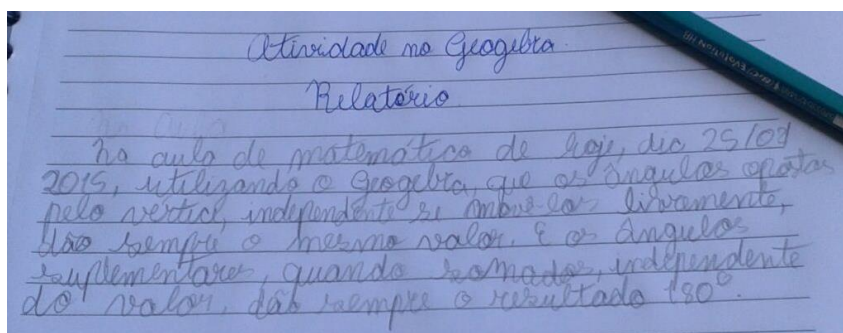 Atividade no Geogebra.
Relatório
na aula de matemática de hoje, dia 25/09
2015, utilizando o Geogebra, que os ângulos opostos
pelo vértice, independente se movê-los livremente,
dão sempre o mesmo valor. E os ângulos
suplementares, quando somados, independente
do valor, dão sempre o resultado 180°.